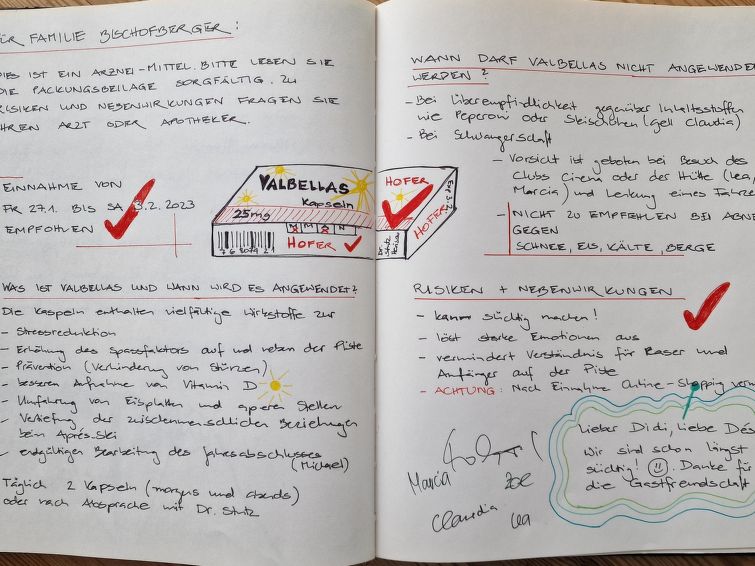 ÜR FAMILIE BISCHOFBERGER:
DIES IST EIN ARZNEI-MITTEL. BITTE LESEN SIE
DIE PACKUNGSBEILAGE SORGFÄLTIG. ZU
RISIKEN UND NEBENWIRKUNGEN FRAGEN SIE
IHREN ARZT ODER APOTHEKER.
EINNAHME VON
FR 27.1. BIS SA 3.2.2023
EMPFOHLEN
VALBELLAS
Kapseln
25mg
HOFER
M M A N
HOFER
HOFER
Dr. Stutz
WAS IST VALBELLAS UND WANN WIRD ES ANGEWENDET?
Die Kaspeln enthalten vielfältige Wirkstoffe zur
- Stressreduktion
- Erhöhung des Spassfaktors auf und neben der Piste
- Prävention (Verhinderung von Stürzen)
- besseren Aufnahme von Vitamin D
- Umfahrung von Eisplatten und aperen Stellen
- Vertiefung der zwischenmenschlichen Beziehungen
beim Après-Ski
- endgültigen Bearbeitung des Jahresabschlusses
(Michael)
Täglich 2 Kapseln (morgens und abends)
oder nach Absprache mit Dr. Stutz
WANN DARF VALBELLAS NICHT ANGEWENDE
WERDEN?
- Bei Überempfindlichkeit gegenüber Inhaltsstoffen
wie Peperoni oder Skischuhen (gell Claudia)
- Bei Schwangerschaft
- Vorsicht ist geboten bei Besuch des
Clubs Cinema oder der Hütte (Lea,
Marcia) und Lenkung eines Fahrze
- NICHT ZU EMPFEHLEN BEI ABNE
GEGEN
SCHNEE, EIS, KÄLTE, BERGE
RISIKEN + NEBENWIRKUNGEN
- kann süchtig machen!
- löst starke Emotionen aus
- vermindert Verständnis für Raser und
Anfänger auf der Piste
- ACHTUNG: Nach Einnahme Online-Shopping verm
Lieber Didi, liebe Dés
Wir sind schon längst
süchtig! Danke für
die Gastfreundschaft
Marcia
Zoe
Claudia
Lea